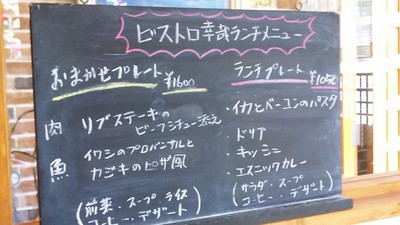 ビストロ幸哉ランチメニュー
おまかせプレート
¥1600
肉 リブステーキの
ビーフシチュー添え
魚 イワシのプロバンサルと
カジキのピザ風
(前菜・スープ・ライス
コーヒー・デザート)
ランチプレート
・イカとベーコンのパスタ
・ドリア
・キッシュ
・エスニックカレー
(サラダ・スープ
コーヒー・デザート)